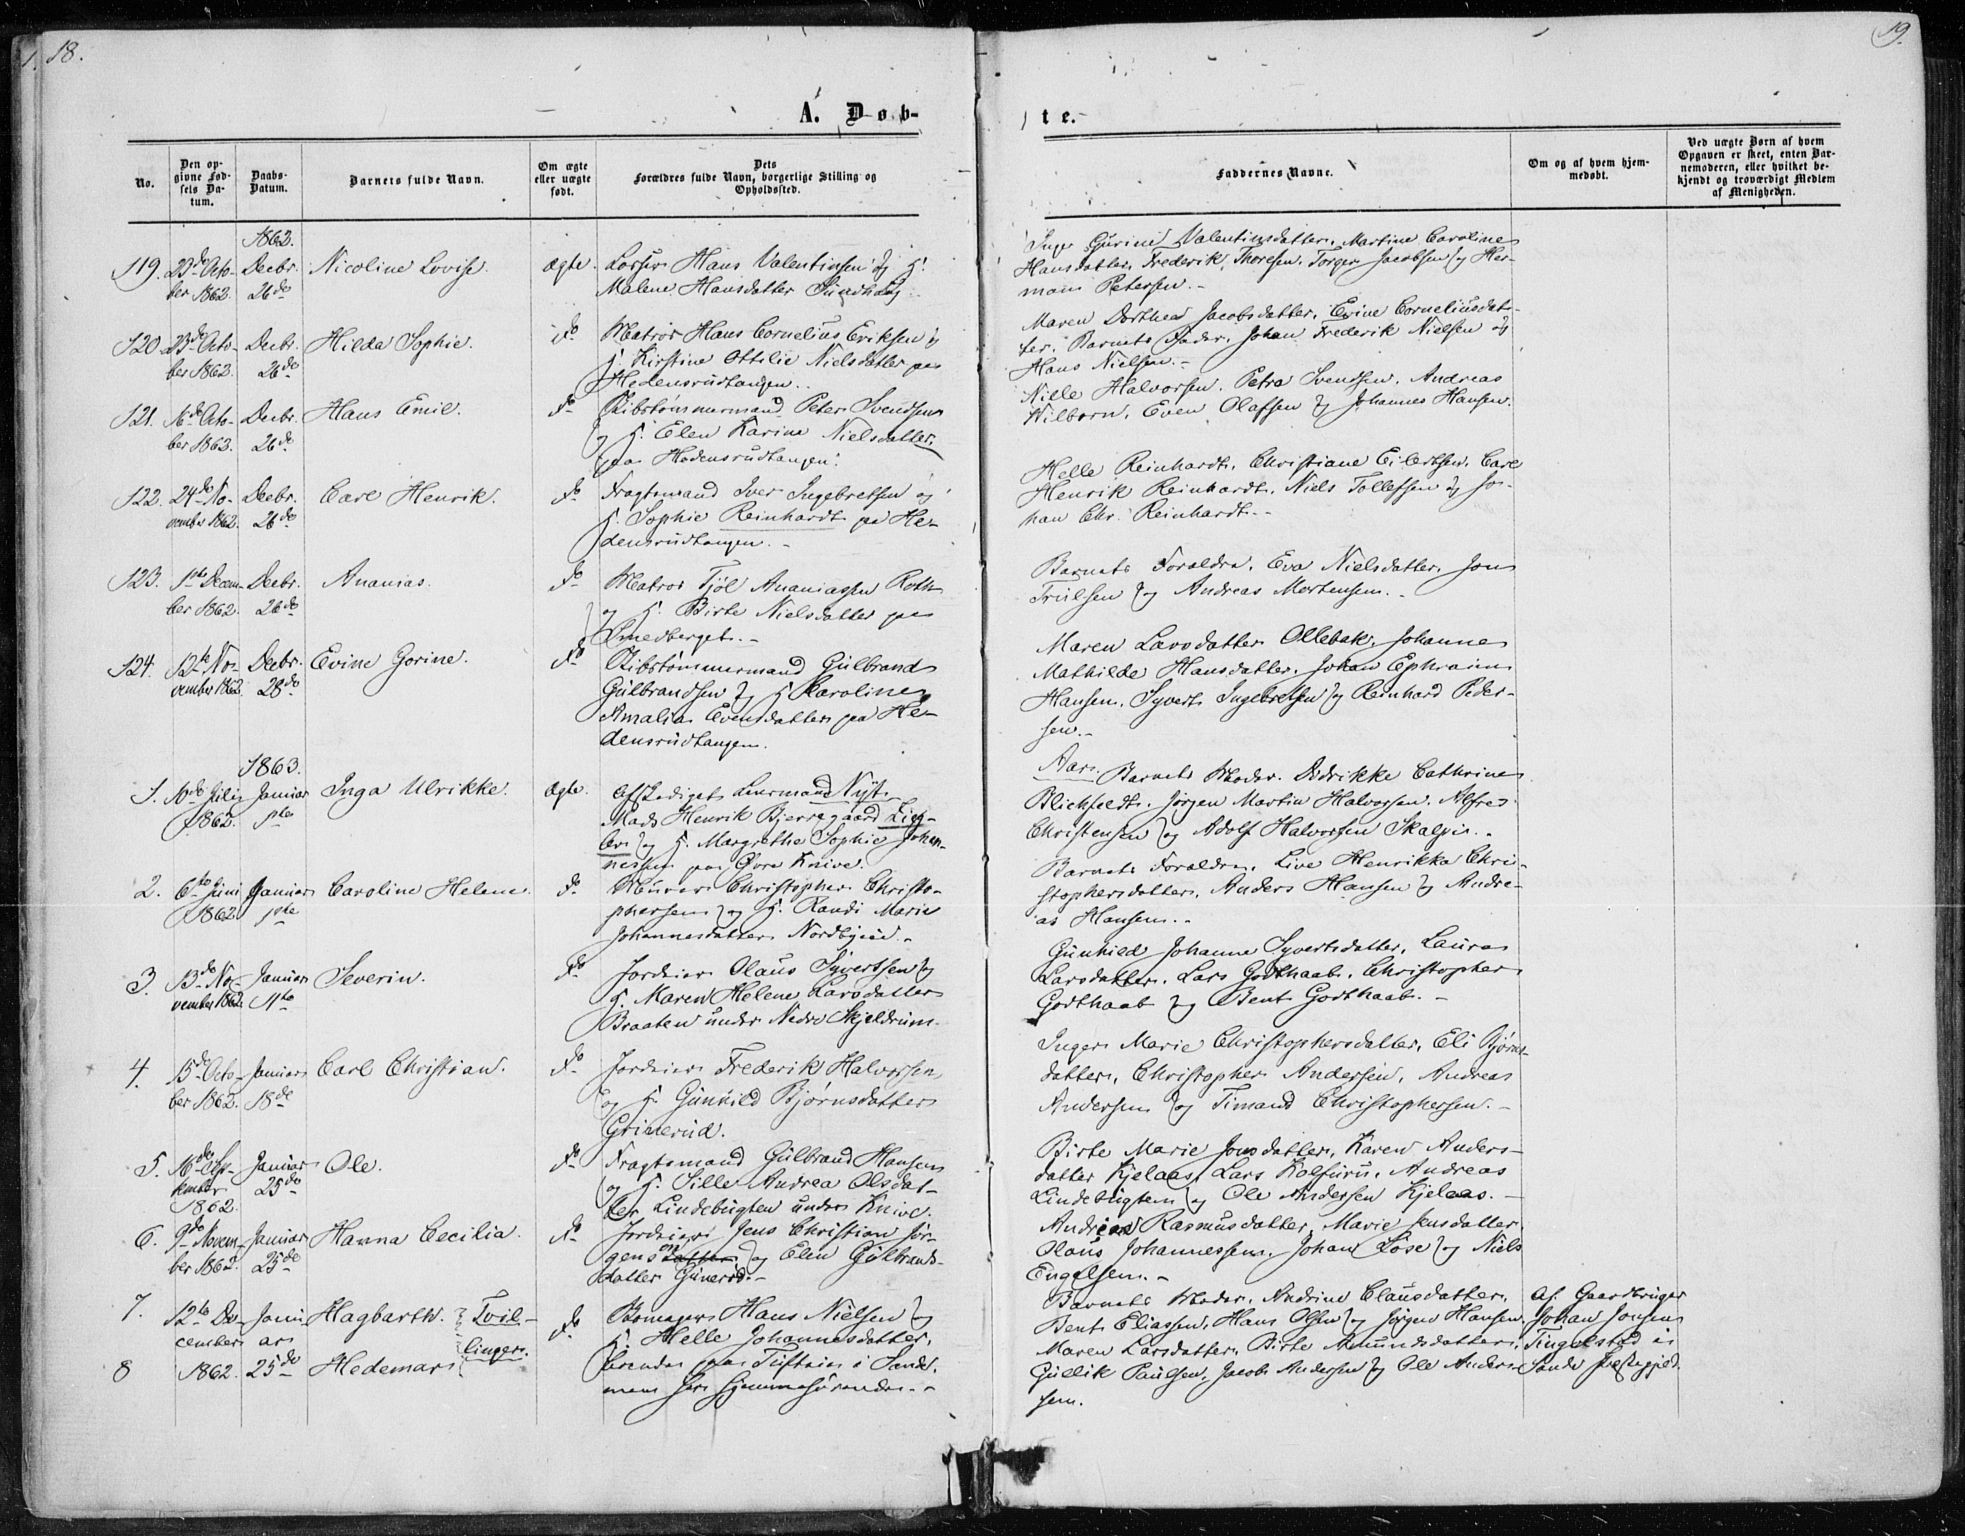 18.
19.
A. Døb-
te.
No.
Den op-
givne Fød-
sels Da-
tum.
Daabs-
Datum.
Barnets fulde Navn.
Om ægte
eller uægte
født.
Dets
Forældres fulde Navn, borgerlige Stilling og
Opholdssted.
Faddernes Navne.
Om og af hvem hjem-
medøbt.
Ved uægte Børn af hvem
Opgaven er skeet, enten Bar-
nemoderen, eller hvilket be-
kjendt og troværdigt Medlem
af Menigheden.
1862.
119. 23de Octo- Decbr. Nicoline Lovise. Ægte. Losser Hans Valentinsen og H.
ber 1862. 26de Malene Hansdatter Sundhaug
Inger Gurine Valentinsdatter, Martine Caroline
Hansdatter, Frederik Thoresen, Torger Jacobsen og Her-
man Petersen.
120. 23de Octo- Decbr. Hilda Sophie. do Matros Hans Cornelius Eriksen og
ber 1862. 26de H. Kirstine Ottilie Nielsdatter paa
Hedensrudtangen.
Maren Dorthea Jacobsdatter, Evine Corneliusdat-
ter, Barnets Fader, Johan Frederik Nielsen og
Hans Nielsen.
121. 16de Octo- Decbr. Hans Emil. do Skibstømmermand Peter Svendsen
ber 1863. 26de og H. Elen Karine Nielsdatter,
paa Hedensrudtangen.
Nille Halvorsen, Petra Svendsen, Andreas
Wilborn, Even Olafsen og Johannes Hansen.
122. 24de No- Decbr. Carl Henrik. do Fragtemand Iver Ingebretsen og
vember 1862. 26de H. Sophie Reinhardt paa He-
densrudtangen.
Helle Reinhardt, Christiane Eilertsen, Carl
Henrik Reinhardt, Niels Tollefsen og Jo-
han Chr. Reinhardt.
123. 1ste Decem- Decbr. Ananias. do Matros Tjøl Ananiassen Roth
ber 1862. 26de og H. Birte Nielsdatter paa
Smedberget.
Barnets Forældre, Eva Nielsdatter, Jon
Trulsen og Andreas Mortensen.
124. 12te No- Decbr. Evine Gorine. do Skibstømmermand Gulbrand
vember 1862. 28de Gulbrandsen og H. Karoline
Amalia Evensdatter paa He-
densrudtangen.
Maren Larsdatter Ollebak, Johanne
Mathilde Hansdatter, Johan Ephraim
Hansen, Syvert Ingebretsen og Reinhard Peder-
sen.
1863.
1. 10de Juli Januar Inga Ulrikke. Ægte. Afskediget Leiermand Nyt.
1862. 1ste Mads Henrik Bjerregaard
og H. Margrethe Sophie Johan-
nesen paa Øvre Knive.
Aars. Barnets Moder, Didrikke Cathrine
Blichfeldt, Jørgen Martin Halvorsen, Alfred
Christensen og Adolf Halvorsen Skalpis.
2. 6te Juni Januar Caroline Helene. do Murer Christopher Christo-
1862 1ste phersen og H. Randi Marie
Johannesdatter Nordbyeie.
Barnets Forældre, Live Henrikka Chri-
stophersdatter, Anders Hansen og Andre-
as Hansen.
3. 13de No- Januar Severin. do Jordeier Olaus Syvertsen og
vember 1862. 11te H. Maren Helene Larsdatter
Braaten under Nedre Skjeldrum.
Gunhild Johanne Syvertsdatter, Laura
Larsdatter, Lars Godthaab, Christopher
Godthaab og Bent Godthaab.
4. 15de Octo- Januar Carl Christian. do Jordeier Frederik Halvorsen
ber 1862. 18de og H. Gunhild Bjørnsdatter
Grimerud.
Inger Marie Christophersdatter, Eli Bjørns-
datter, Christopher Andersen, Andreas
Andersen og Timand Christophersen.
5. 16de Sep- Januar Ole. do Fragtemand Gulbrand Hansen
tember 25de og H. Sille Andrea Olsdat-
1862. ter Lindebugten under Knive.
Birte Marie Jonsdatter, Karen Anders-
datter Kjelaas, Lars Kolfuru, Andreas
Lindebugten og Ole Andersen Kjelaas.
6. 9de Novem- Januar Hanna Cecilia. do Jordeier Jens Christian Jør-
ber 1862. 25de gensen og Elen Gulbrands-
datter Gunerød.
Andrea Rasmusdatter, Marie Jensdatter,
Olaus Johannessen, Johan Lose og Niels
Engelsen.
7. 12te De- Janu- Hagbarth. Tvil- do Bomager Hans Nielsen og
cember ar linger. H. Helle Johannesdatter,
8 1862. 25de Hedemar boende paa Tuftein i Sande,
men her hjemmehørende.
Barnets Moder, Andrine Clausdatter,
Bent Eliassen, Hans Olsen og Jørgen Hansen.
Maren Larsdatter, Birte Amundsdatter,
Gullik Paulsen, Jacob Andersen og Ole Ander-
sen.
Af Gaardbruger
Johan Jonsen
Tingelstad i
Sande Præstegjeld.